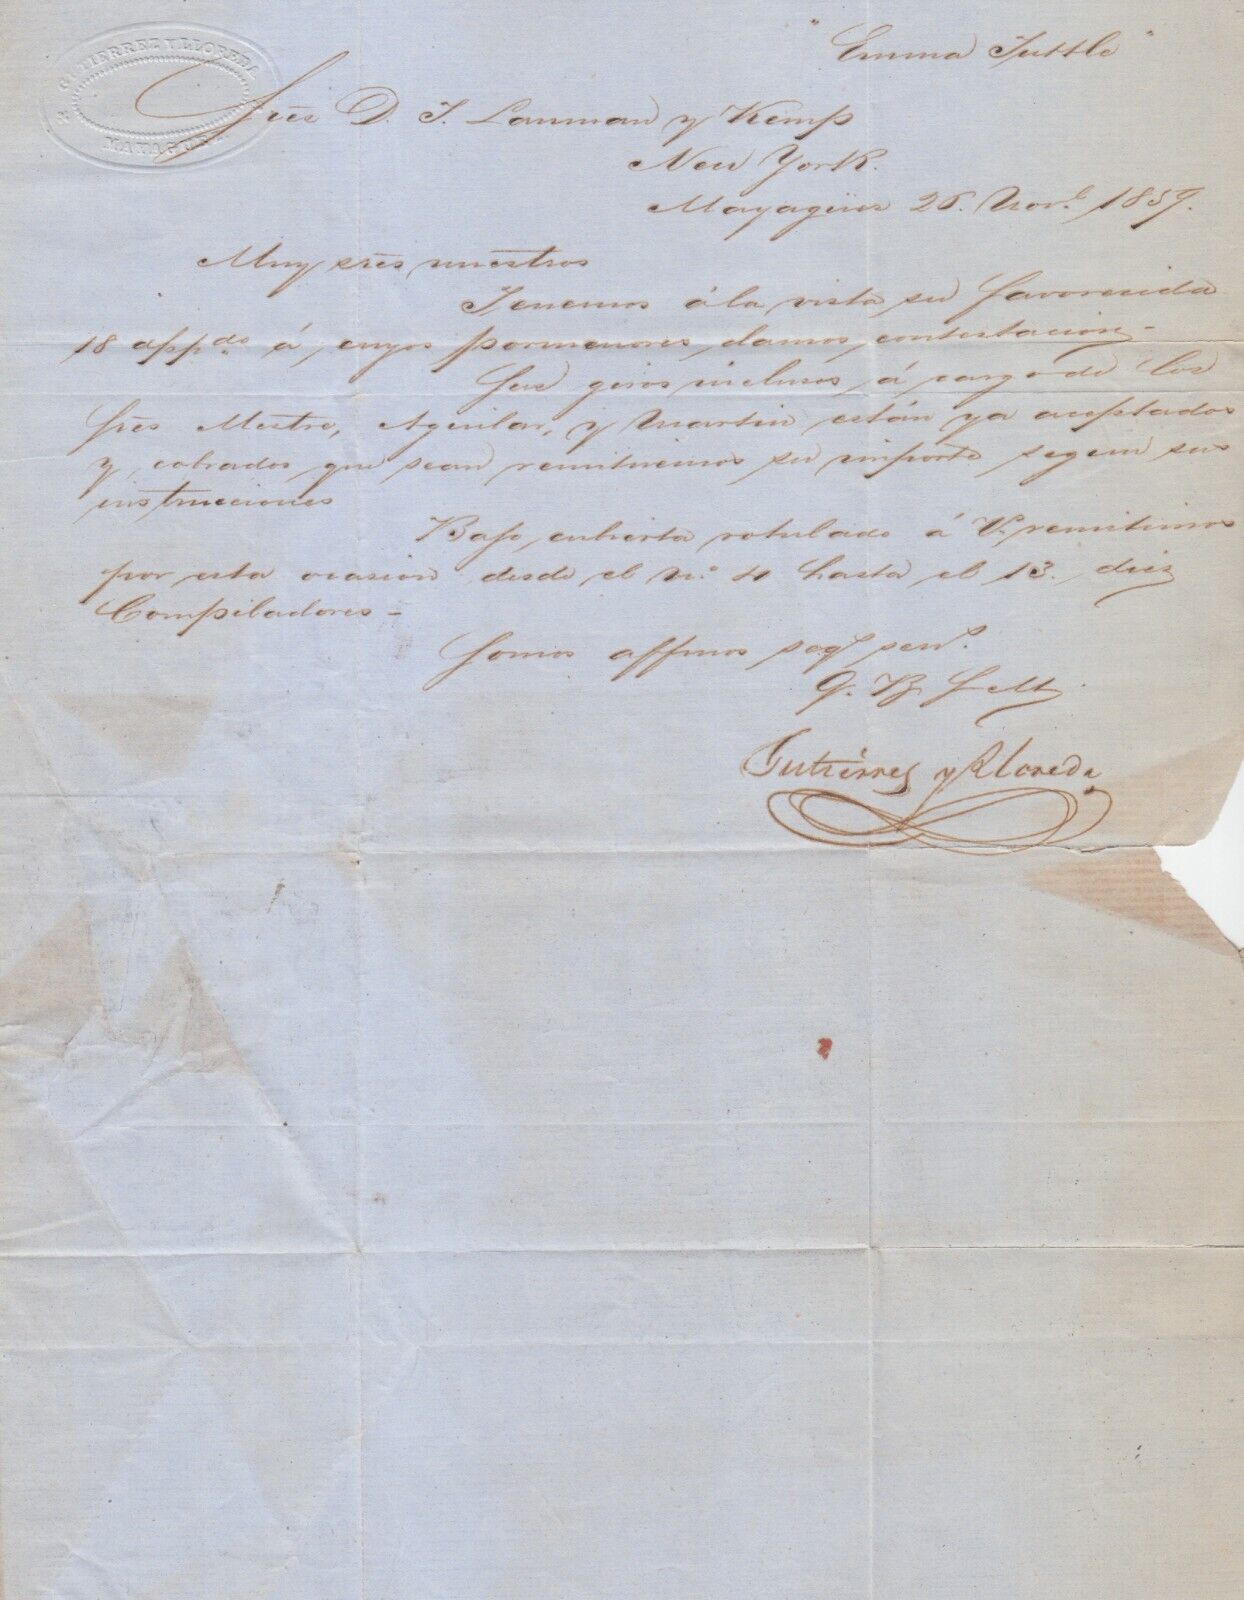 GUTIERREZ Y LLOREDA
MAYAGUEZ
"Emma Tuttle"
Srēs D. T. Lanman y Kemp
New York.
Mayagües 26. Novᵉ 1859.
Muy srēs nuestros
Tenemos á la vista su favorecida
18 oppᵈᵒ á, cuyos pormenores, damos, contestacion –
Sus giros inclusos, á cargo de los
Srēs Mestre, Aguilar, y Martin están ya aceptados
y, cobrados, que sean remitiremos su importe segun sus
instrucciones
Bajo, cubierta rotulado á V. remitimos
por esta ocasion desde el Nº 4 hasta el 13. diez
Compiladores –
Somos affmos segˢ servˢ.
Q. B. S. M.
Gutiérrez y Lloreda